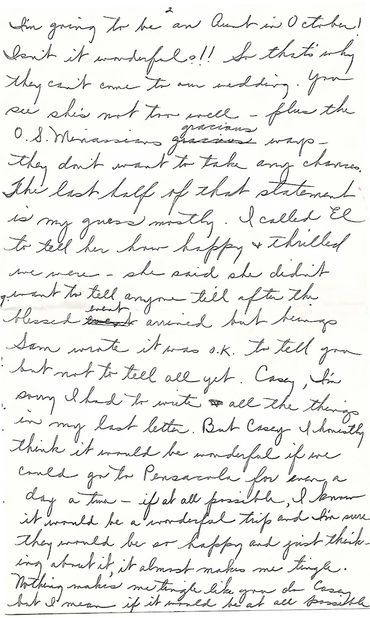 2
I'm going to be an Aunt in October!
Isn't it wonderful!!! So that's why
they can't come to our wedding. You
see she's not too well – plus the
gracious
O.S. Minassians ways –
they don't want to take any chances.
The last half of that statement
is my guess mostly. I called El
to tell her how happy & thrilled
we were – she said she didn't
want to tell anyone till after the
event
blessed arrived but being
Sam wrote it was o.k. to tell you
but not to tell all yet. Casey, I'm
sorry I had to write all the things
in my last letter. But Casey I honestly
think it would be wonderful if we
could go to Pensacola for even a
day or two – if at all possible, I know
it would be a wonderful trip and I'm sure
they would be so happy and just think-
ing about it, it almost makes me tingle.
Nothing makes me tingle like you do Casey
but I mean if it would be at all possible